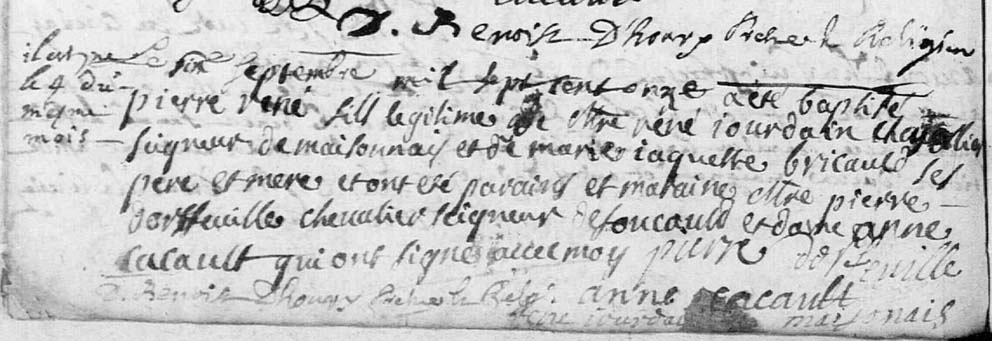 D. Benoist Dhoury Prestre Religieu
il est ne
le 4 du
mesme
mois
Le six septembre mil sept cent onze a été baptisé
pierre rené fill legitime de Mre réné iourdain chevallier
seigneur de maisonnais et de marie iaquette bricauld ses
pere et mere et ont été parains et maraine Mre pierre
dorfeuille chevalier seigneur de foucauld et dame anne
cacault qui ont signé avec moy pierre dorfeuille
D. Benoist Dhoury Prestre Relig. anne cacault
rene iourdain maisonnais